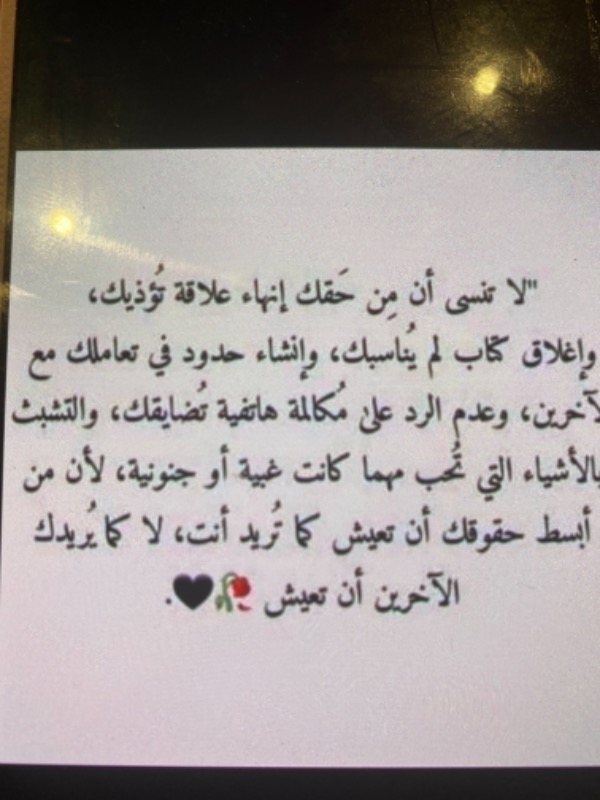 "لا تنسى أن مِن حَقك إنهاء علاقة تُؤذيك،
وإغلاق كتاب لم يُناسبك، وإنشاء حدود في تعاملك مع
الآخرين، وعدم الرد على مُكالمة هاتفية تُضايقك، والتشبث
بالأشياء التي تُحب مهما كانت غبية أو جنونية، لأن من
أبسط حقوقك أن تعيش كما تُريد أنت، لا كما يُريدك
الآخرين أن تعيش 🥀🖤.